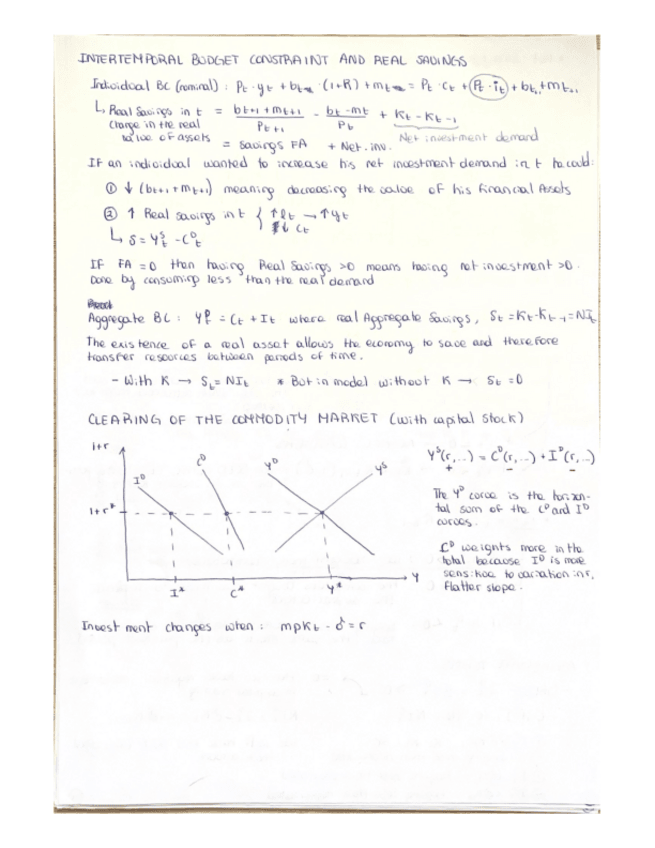 INTERTEMPORAL BUDGET CONSTRAINT AND REAL SAVINGS
Individual BC (nominal) : Pt · yt + bt · (1+R) + mt = Pt · ct + Pt · it + bt+1 + mt+1
↳ Real Savings in t = (bt+1 + mt+1)/Pt+1 - (bt - mt)/Pt + Kt - Kt-1
change in the real value of assets
Net investment demand
= savings FA + Net. inv.
IF an individual wanted to increase his net investment demand in t he could:
① ↓ (bt+1 + mt+1) meaning decreasing the value of his Financial Assets
② ↑ Real savings in t { ↑ lt → ↑ yt
↓ ct
↳ s = Y^S_t - C^D_t
IF FA = 0 then having Real Savings >0 means having net investment >0.
Done by consuming less than the real demand
Aggregate BC : = Ct + It where real Aggregate Savings, St = Kt - Kt-1 = NIt
The existence of a real asset allows the economy to save and therefore
transfer resources between periods of time.
- With K → St = NIt * But in model without K → St = 0
CLEARING OF THE COMMODITY MARKET (with capital stock)
1+r
I^D
C^D
Y^D
Y^S
1+r*
I*
C*
Y*
Y
Y^S(r,...) = C^D(r,...) + I^D(r,...)
+ - -
The Y^D curve is the horizon-
tal sum of the C^D and I^D
curves.
C^D weights more in the
total because I^D is more
sensitive to variation in r,
flatter slope.
Investment changes when : mpKt - δ = r